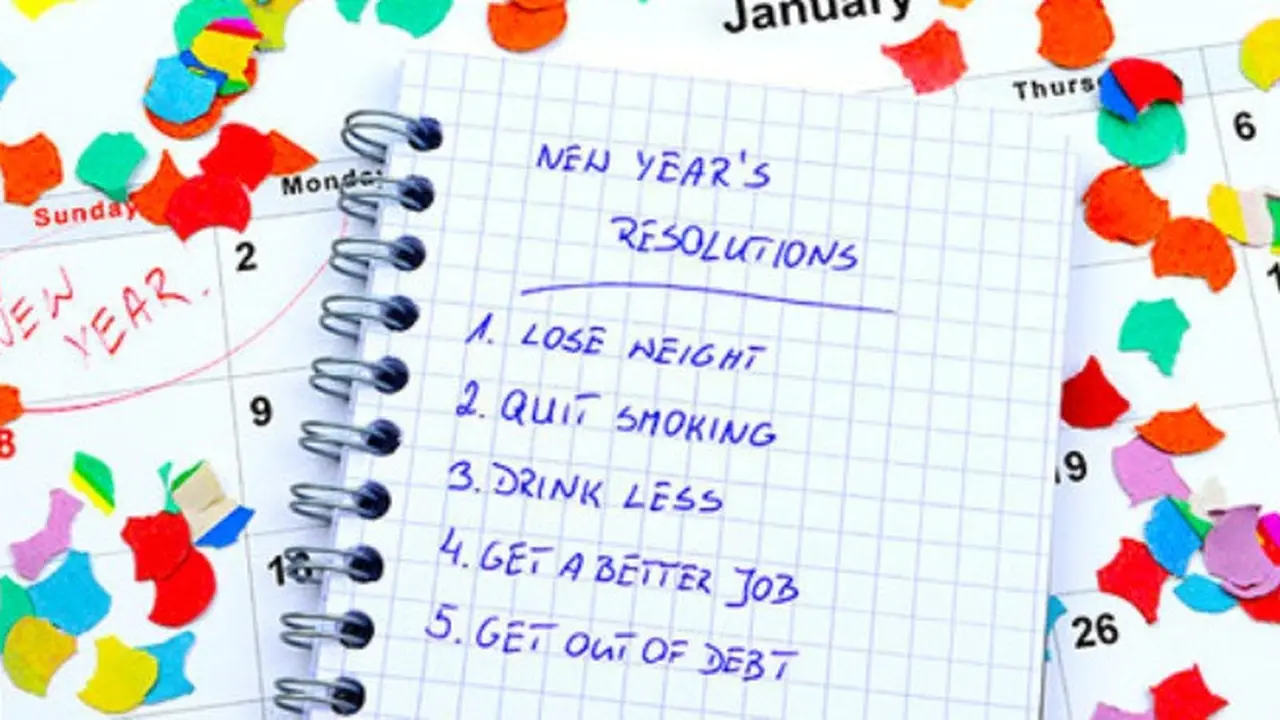 January
Thurs
6
Sunday
Monday
2
NEW
YEAR.
9
8
16
19
26
NEW YEAR'S
RESOLUTIONS
1. LOSE WEIGHT
2. QUIT SMOKING
3. DRINK LESS
4. GET A BETTER JOB
5. GET OUT OF DEBT